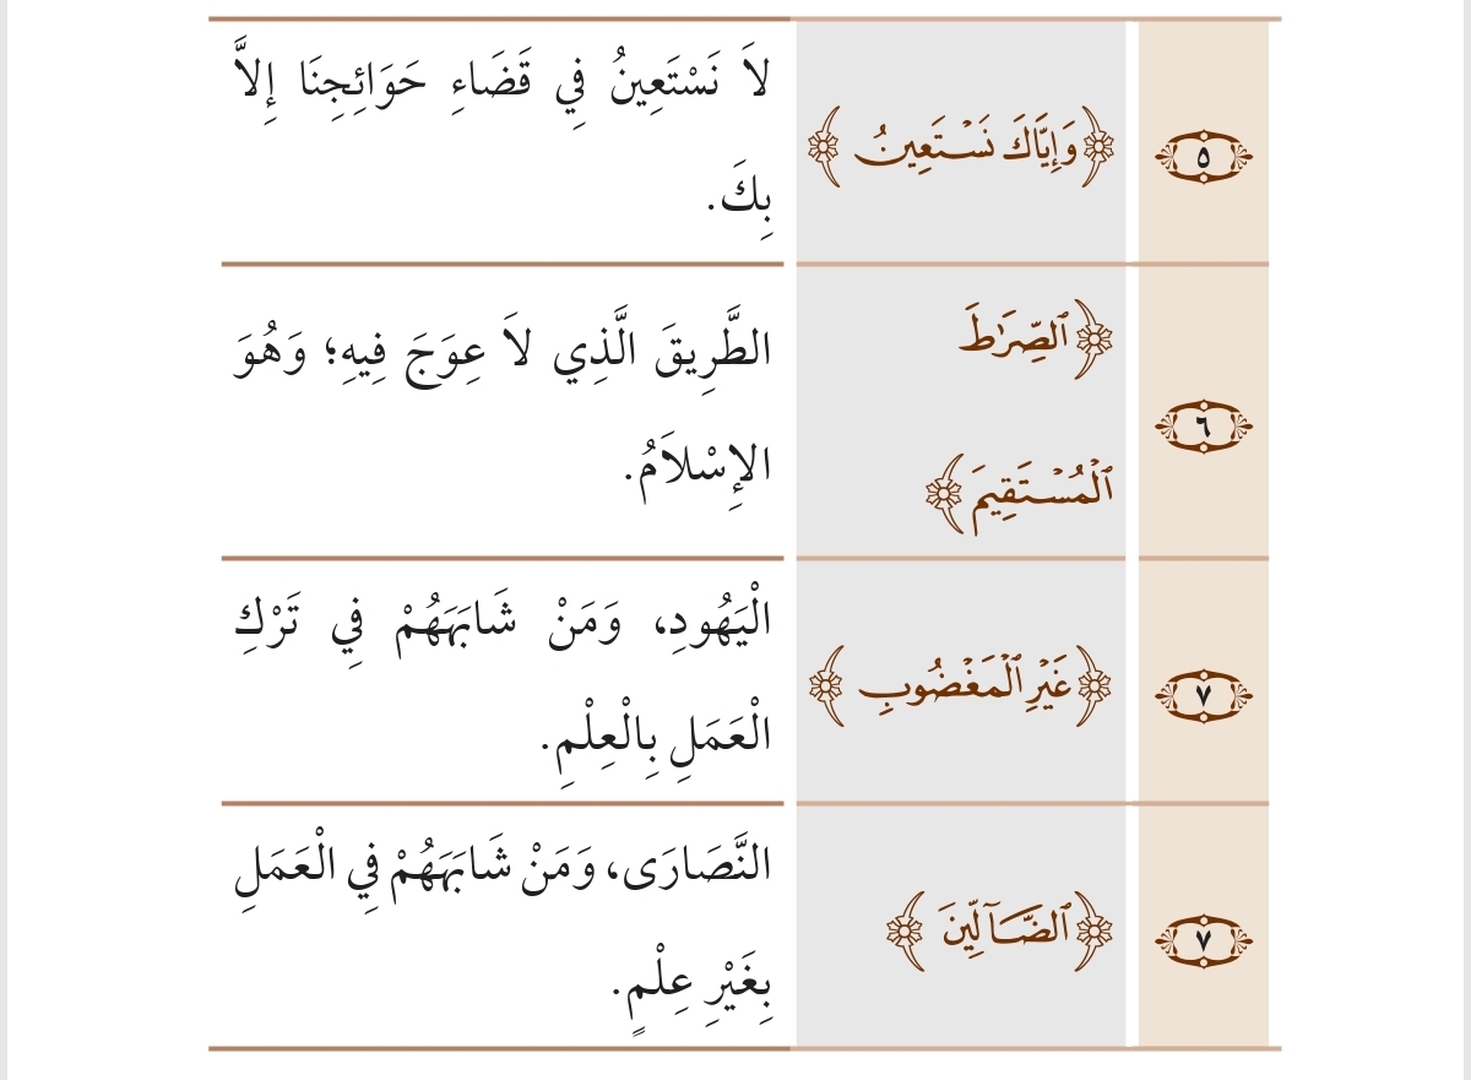 ٥
﴿وَإِيَّاكَ نَسۡتَعِينُ﴾
لاَ نَسْتَعِينُ فِي قَضَاءِ حَوَائِجِنَا إِلاَّ
بِكَ.
٦
﴿ٱلصِّرَٰطَ
ٱلۡمُسۡتَقِيمَ﴾
الطَّرِيقَ الَّذِي لاَ عِوَجَ فِيهِ؛ وَهُوَ
الإِسْلاَمُ.
٧
﴿غَيۡرِ ٱلۡمَغۡضُوبِ﴾
الْيَهُودِ، وَمَنْ شَابَهَهُمْ فِي تَرْكِ
الْعَمَلِ بِالْعِلْمِ.
٧
﴿ٱلضَّآلِّينَ﴾
النَّصَارَى، وَمَنْ شَابَهَهُمْ فِي الْعَمَلِ
بِغَيْرِ عِلْمٍ.